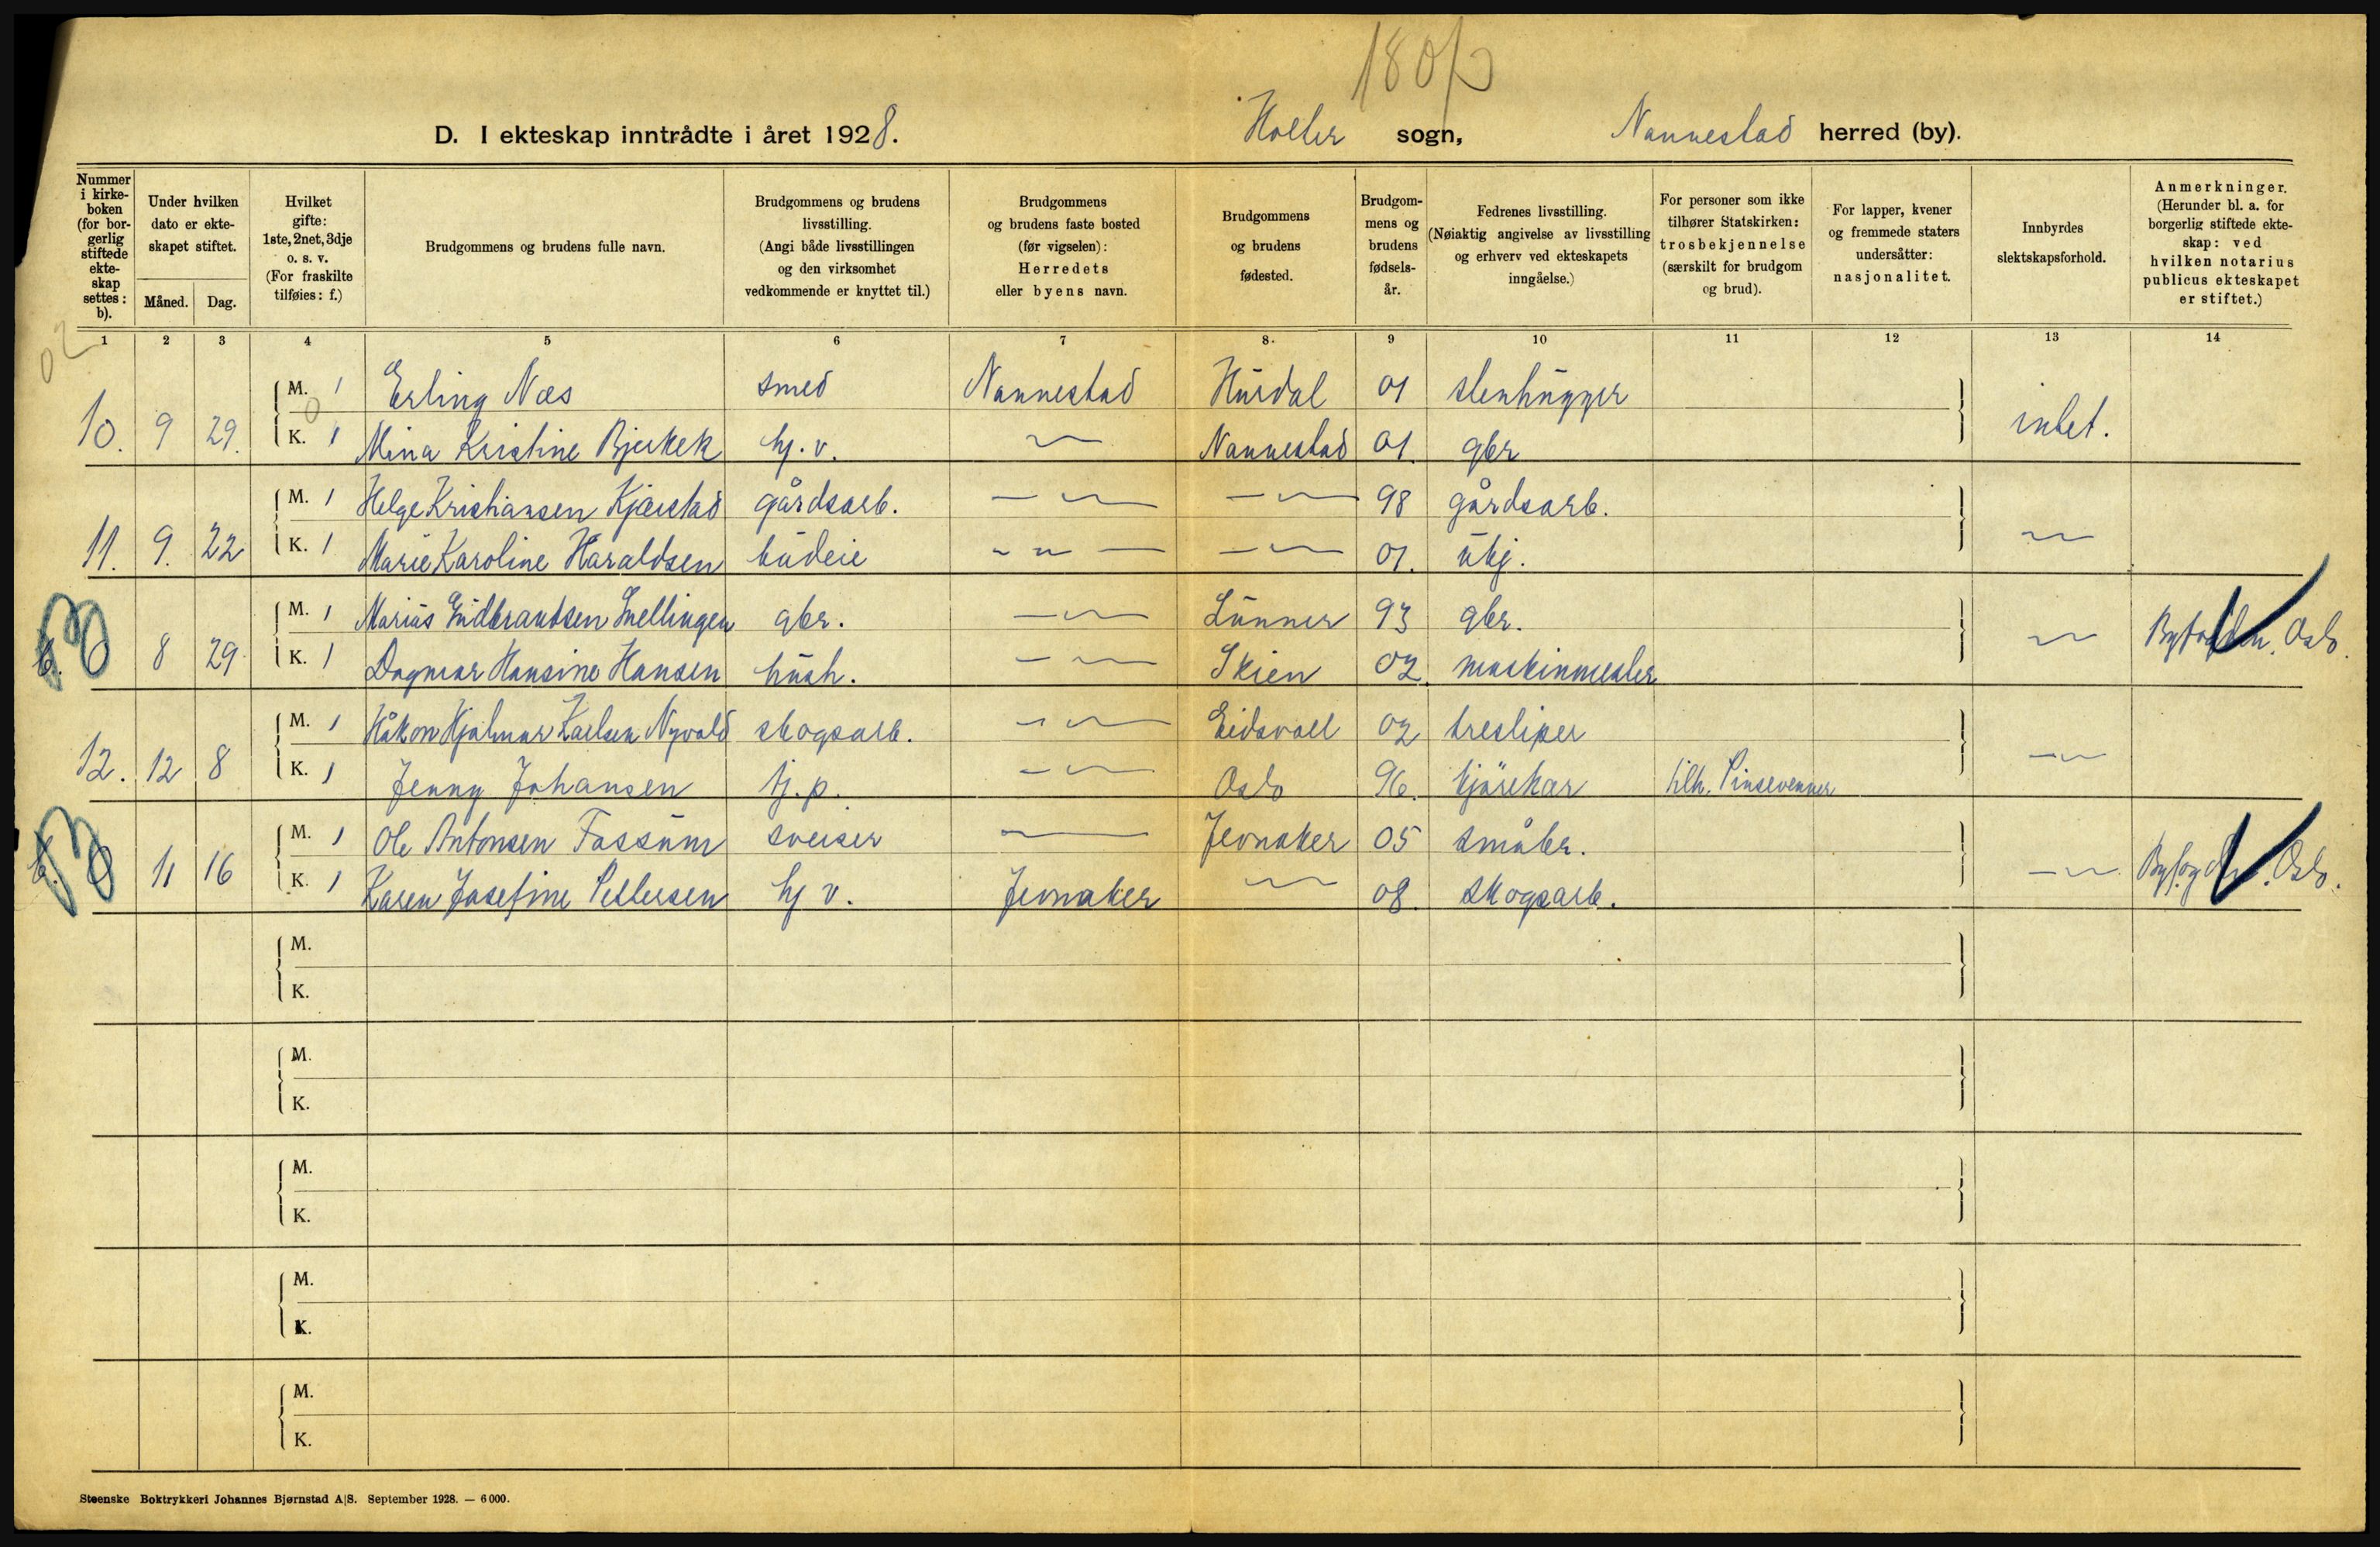 180
D. I ekteskap inntrådte i året 1928.
Holter sogn, Nannestad herred (by).
Nummer i kirke-boken (for bor-gerlig stiftede ekte-skap settes: b).
Under hvilken dato er ekte-skapet stiftet.
Måned. Dag.
Hvilket gifte: 1ste, 2net, 3dje o. s. v. (For fraskilte tilføies: f.)
Brudgommens og brudens fulle navn.
Brudgommens og brudens livsstilling. (Angi både livsstillingen og den virksomhet vedkommende er knyttet til.)
Brudgommens og brudens faste bosted (før vigselen): Herredets eller byens navn.
Brudgommens og brudens fødested.
Brudgom-mens og brudens fødsels-år.
Fedrenes livsstilling. (Nøiaktig angivelse av livsstilling og erhverv ved ekteskapets inngåelse.)
For personer som ikke tilhører Statskirken: trosbekjennelse (særskilt for brudgom og brud).
For lapper, kvener og fremmede staters undersåtter: nasjonalitet.
Innbyrdes slektskapsforhold.
Anmerkninger. (Herunder bl. a. for borgerlig stiftede ekte-skap: ved hvilken notarius publicus ekteskapet er stiftet.)
1 2 3 4 5 6 7 8. 9 10 11 12 13 14
M. 1 Erling Næs smed Nannestad Hurdal 01 stenhugger
10. 9 29. K. 1 Mina Kristine Bjerkek hj. v. — Nannestad 01. gbr intet.
M. 1 Helge Kristiansen Kjærstad gårdsarb. — — 98 gårdsarb.
11. 9. 22 K. 1 Marie Karoline Haraldsen budeie — — 01. ukj. —
M. 1 Marius Gudbrandsen Snellingen gbr. — Lunner 93 gbr.
b. 8 29. K. 1 Dagmar Hansine Hansen hush. — Skien 02. maskinmester — Byfogden. Oslo.
M. 1 Håkon Hjalmar Karlsen Nyvold skogsarb. — Eidsvoll 02 tresliper
12. 12 8 K. 1 Jenny Johansen tj. p. — Oslo 96. kjørekar tilh. Pinsevenner —
M. 1 Ole Antonsen Fossum sveiser — Jevnaker 05 småbr.
b. 11 16 K. 1 Karen Josefine Pettersen hj v. Jevnaker — 08. skogsarb. — Byfogden. Oslo.
M.
K.
M.
K.
M.
K.
M.
K.
M.
K.
Steenske Boktrykkeri Johannes Bjørnstad A|S. September 1928. — 6000.